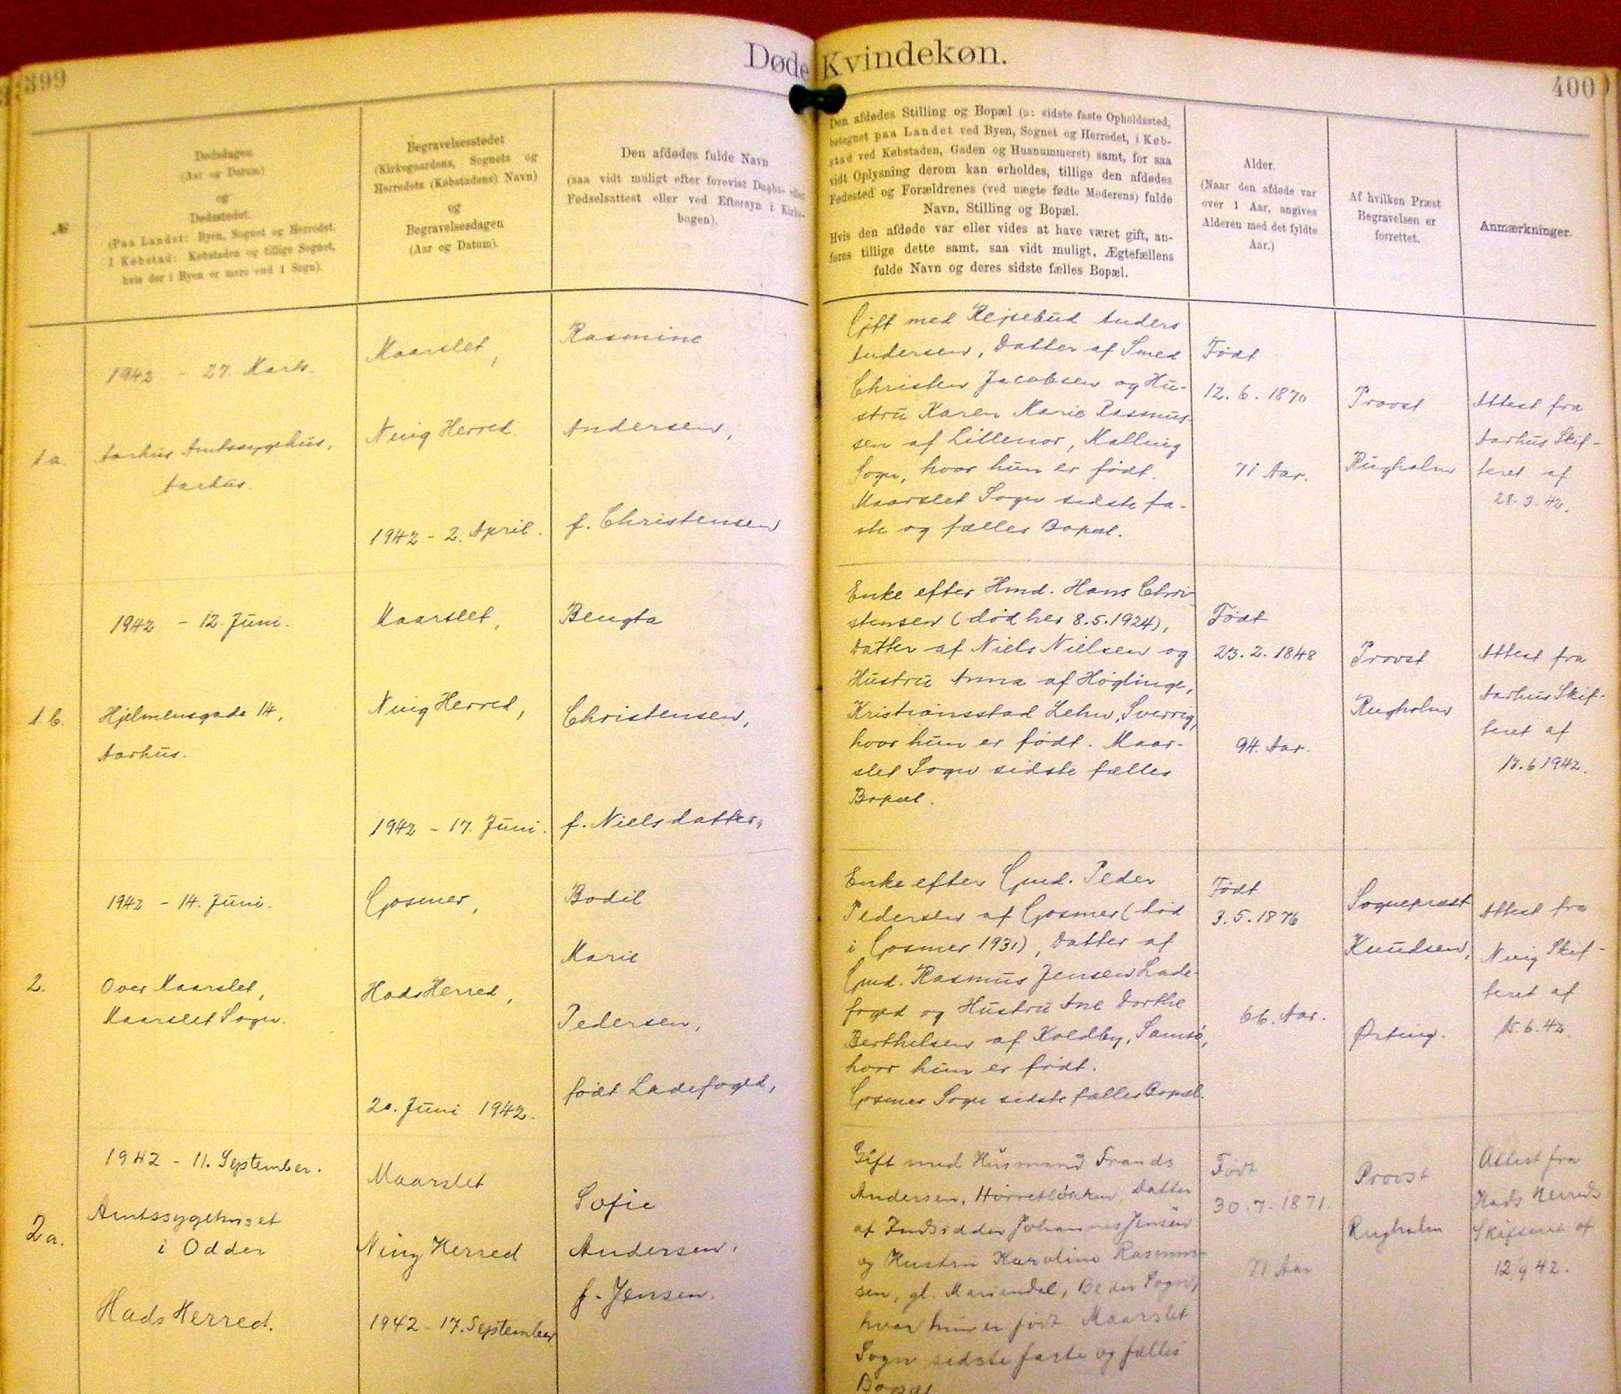 399
Døde Kvindekøn.
400
№
Dødsdagen
(Aar og Datum)
og
Dødsstedet.
(Paa Landet: Byen, Sognet og Herredet.
I Købstad: Købstaden og tillige Sognet,
hvis der i Byen er mere end 1 Sogn).
Begravelsesstedet
(Kirkegaardens, Sognets og
Herredets (Købstadens) Navn)
og
Begravelsesdagen
(Aar og Datum).
Den afdødes fulde Navn
(saa vidt muligt efter forevist Daabs- eller
Fødselsattest eller ved Eftersyn i Kirke-
bogen).
Den afdødes Stilling og Bopæl (ɔ: sidste faste Opholdssted,
betegnet paa Landet ved Byen, Sognet og Herredet, i Køb-
stad ved Købstaden, Gaden og Husnummeret) samt, for saa
vidt Oplysning derom kan erholdes, tillige den afdødes
Fødested og Forældrenes (ved uægte fødte Moderens) fulde
Navn, Stilling og Bopæl.
Hvis den afdøde var eller vides at have været gift, an-
føres tillige dette samt, saa vidt muligt, Ægtefællens
fulde Navn og deres sidste fælles Bopæl.
Alder.
(Naar den afdøde var
over 1 Aar, angives
Alderen med det fyldte
Aar.)
Af hvilken Præst
Begravelsen er
forrettet.
Anmærkninger.
1a.
1942 - 27. Marts.
Aarhus Amtssygehus,
Aarhus.
Maarslet,
Ning Herred
1942 - 2. April.
Rasmine
Andersen,
f. Christensen
Gift med Rejsebud Anders
Andersen, Datter af Smed
Christen Jacobsen og Hu-
stru Karen Marie Rasmus-
sen af Lillenor, Malling
Sogn, hvor hun er født.
Maarslet Sogn sidste fa-
ste og fælles Bopæl.
Født
12. 6. 1870
71 Aar.
Provst
Rugholm
Attest fra
Aarhus Skif-
teret af
28. 3. 42.
1b.
1942 - 12. Juni.
Hjelmensgade 14,
Aarhus.
Maarslet,
Ning Herred,
1942 - 17. Juni.
Bengta
Christensen,
f. Nielsdatter,
Enke efter Hmd. Hans Chri-
stensen (død her 8.5.1924),
Datter af Niels Nielsen og
Hustru Anna af Høglinge,
Kristiansstad Lehn, Sverrig,
hvor hun er født. Maar-
slet Sogn sidste fælles
Bopæl.
Født
23. 2. 1848
94. Aar.
Provst
Rugholm
Attest fra
Aarhus Skif-
teret af
13.6 1942.
2.
1942 - 14. Juni.
Over Maarslet,
Maarslet Sogn.
Gosmer,
Hads Herred,
20. Juni 1942.
Bodil
Marie
Pedersen,
født Ladefoged,
Enke efter Gmd. Peder
Pedersen af Gosmer (død
i Gosmer 1931), Datter af
Gmd. Rasmus Jensen Lade-
foged og Hustru Ane Dorthe
Berthelsen af Koldby, Samsø,
hvor hun er født.
Gosmer Sogn sidste fælles Bopæl.
Født
3. 5. 1876
66. Aar.
Sognepræst
Knudsen,
Ørting.
Attest fra
Ning Skif-
teret af
15. 6. 42.
2a.
1942 - 11. September.
Amtssygehuset
i Odder
Hads Herred.
Maarslet
Ning Herred
1942 - 17. September
Sofie
Andersen.
f. Jensen.
Gift med Husmand Frands
Andersen, Hørretløkken, Datter
af Indsidder Johannes Jensen
og Hustru Karoline Rasmus-
sen, gl. Mariendal, Beder Sogn,
hvor hun er født. Maarslet
Sogn sidste faste og fælles
Bopæl
Født
30. 7. 1871.
71 Aar
Provst
Rugholm
Attest fra
Hads Herreds
Skifteret af
12/9 42.